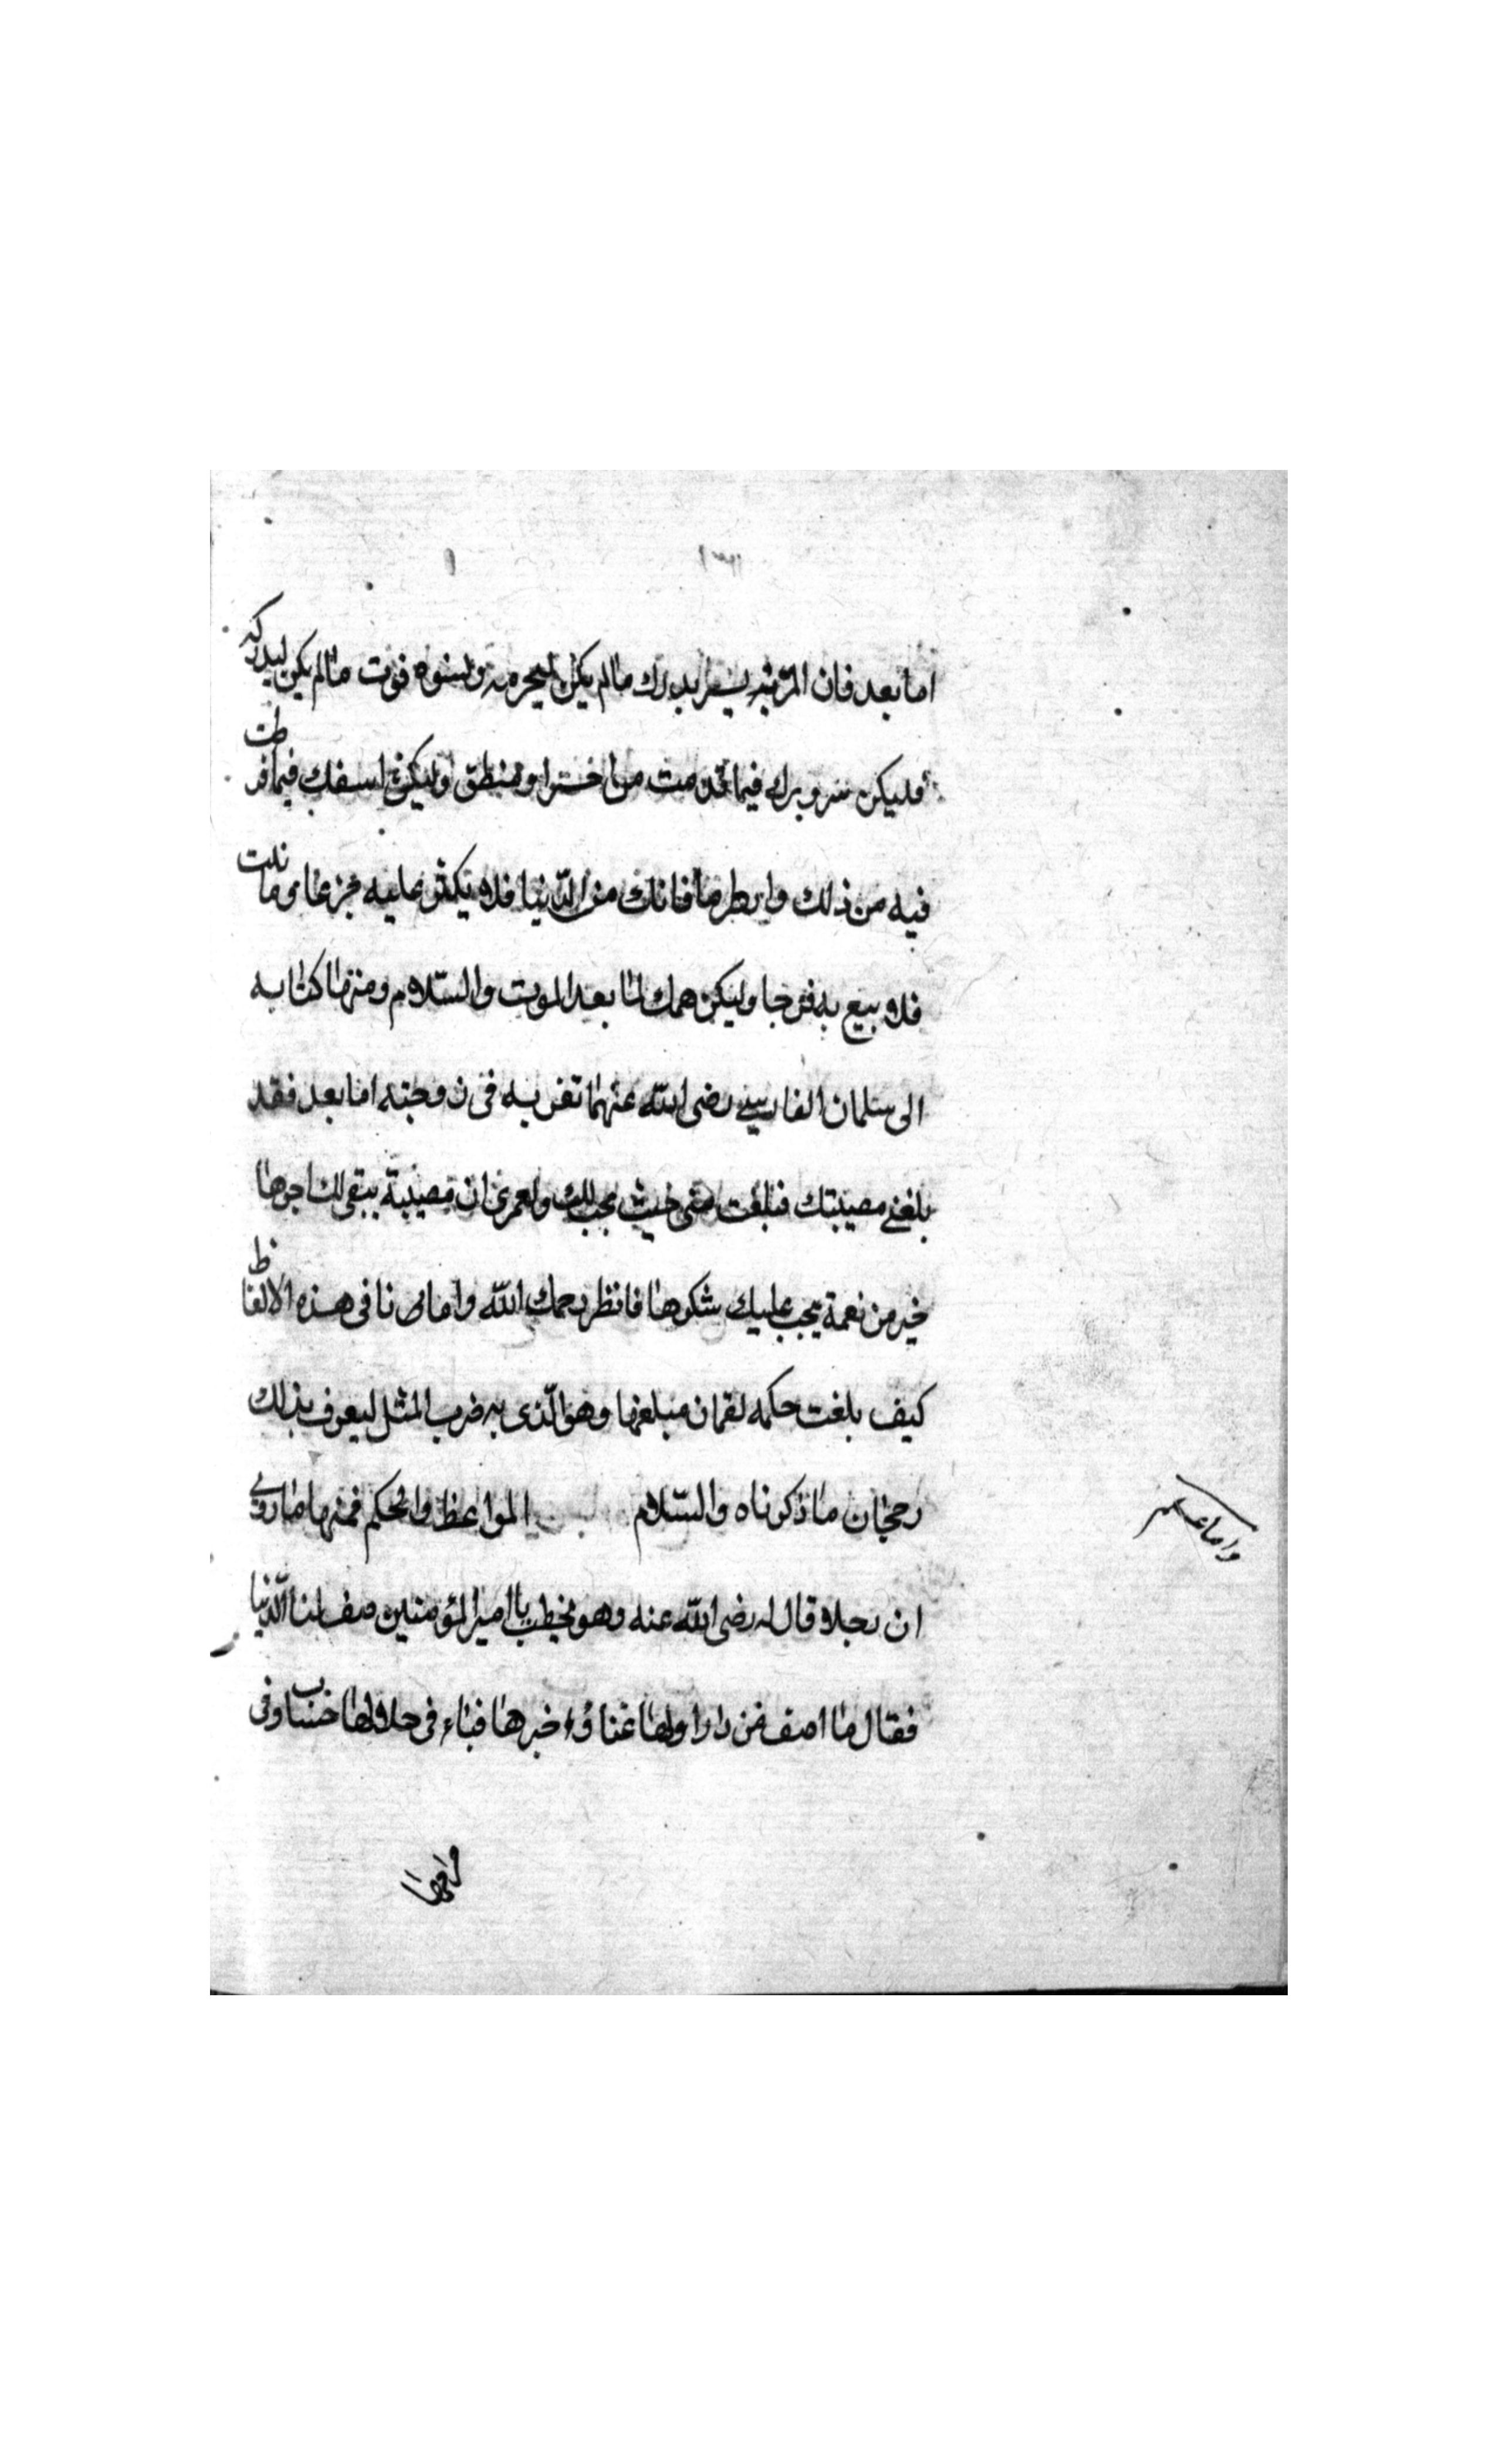 اما بعد فان المرء يسر بدرك مالم يكن ليحرمه ويسؤه فوت مالم يكن ليدركه
فليكن سرورك فيما قدمت من اخر او منطق وليكن اسفك فيما فرطت
فيه من ذلك وانظر ما فاتك من الدنيا فلا يكثر عليه جزعا وما نلت
فلا بيع به فرحا وليكن همك لما بعد الموت والسلام ومنها كتابه
الى سلمان الفارسي رضى الله عنهما تعزيه فى زوجته اما بعد فقد
بلغني مصيبتك فبلغت منى حيث محب لك ولعمرى ان مصيبة يبقى لك اجرها
خير من نعمة يجب عليك شكرها فانظر رحمك الله واما فى هذه الالفاظ
كيف بلغت حكمه لقمان مبلغها وهو الّذى به ضرب المثل ليعرف بذلك
رجحان ما ذكرناه والسلام المواعظ والحكم فمنها ما روى
ان رجلا قال له رضى الله عنه وهو يخطب يا امير المؤمنين صف لنا الدنيا
فقال ما اصف من دار اولها عناؤ اخرها فناء فى حلالها حساب وفى